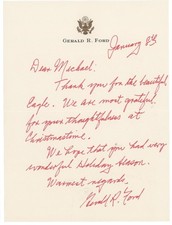 GERALD R. FORD
January 8th
Dear Michael,
Thank you for the beautiful
Eagle. We are most grateful
for your thoughtfulness at
Christmastime.
We hope that you had very
wonderful Holiday Season.
Warmest regards,
Gerald R. Ford